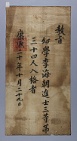 敎旨
幼學李海朝進士三等第
三十四人入格者
康熙二十年十月二十九日